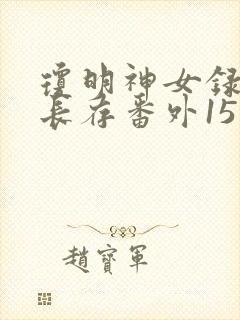 琼明神女録
長存番外15
趙寶軍